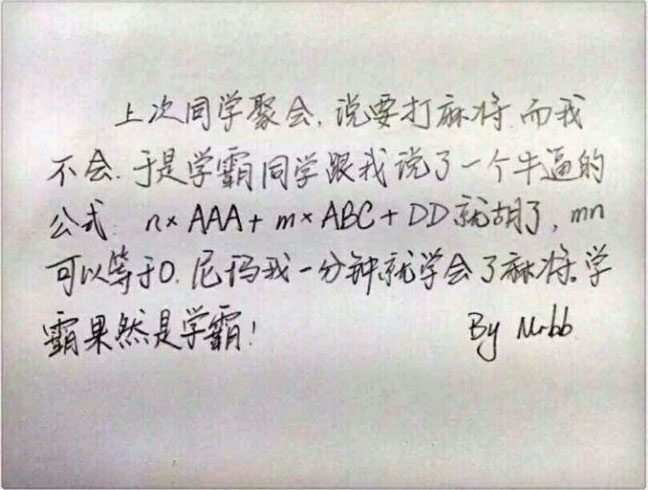 上次同学聚会，说要打麻将，而我
不会，于是学霸同学跟我说了一个牛逼的
公式：n×AAA+m×ABC+DD就胡了，mn
可以等于0，尼玛我一分钟就学会了麻将。学
霸果然是学霸！ By Mrbb